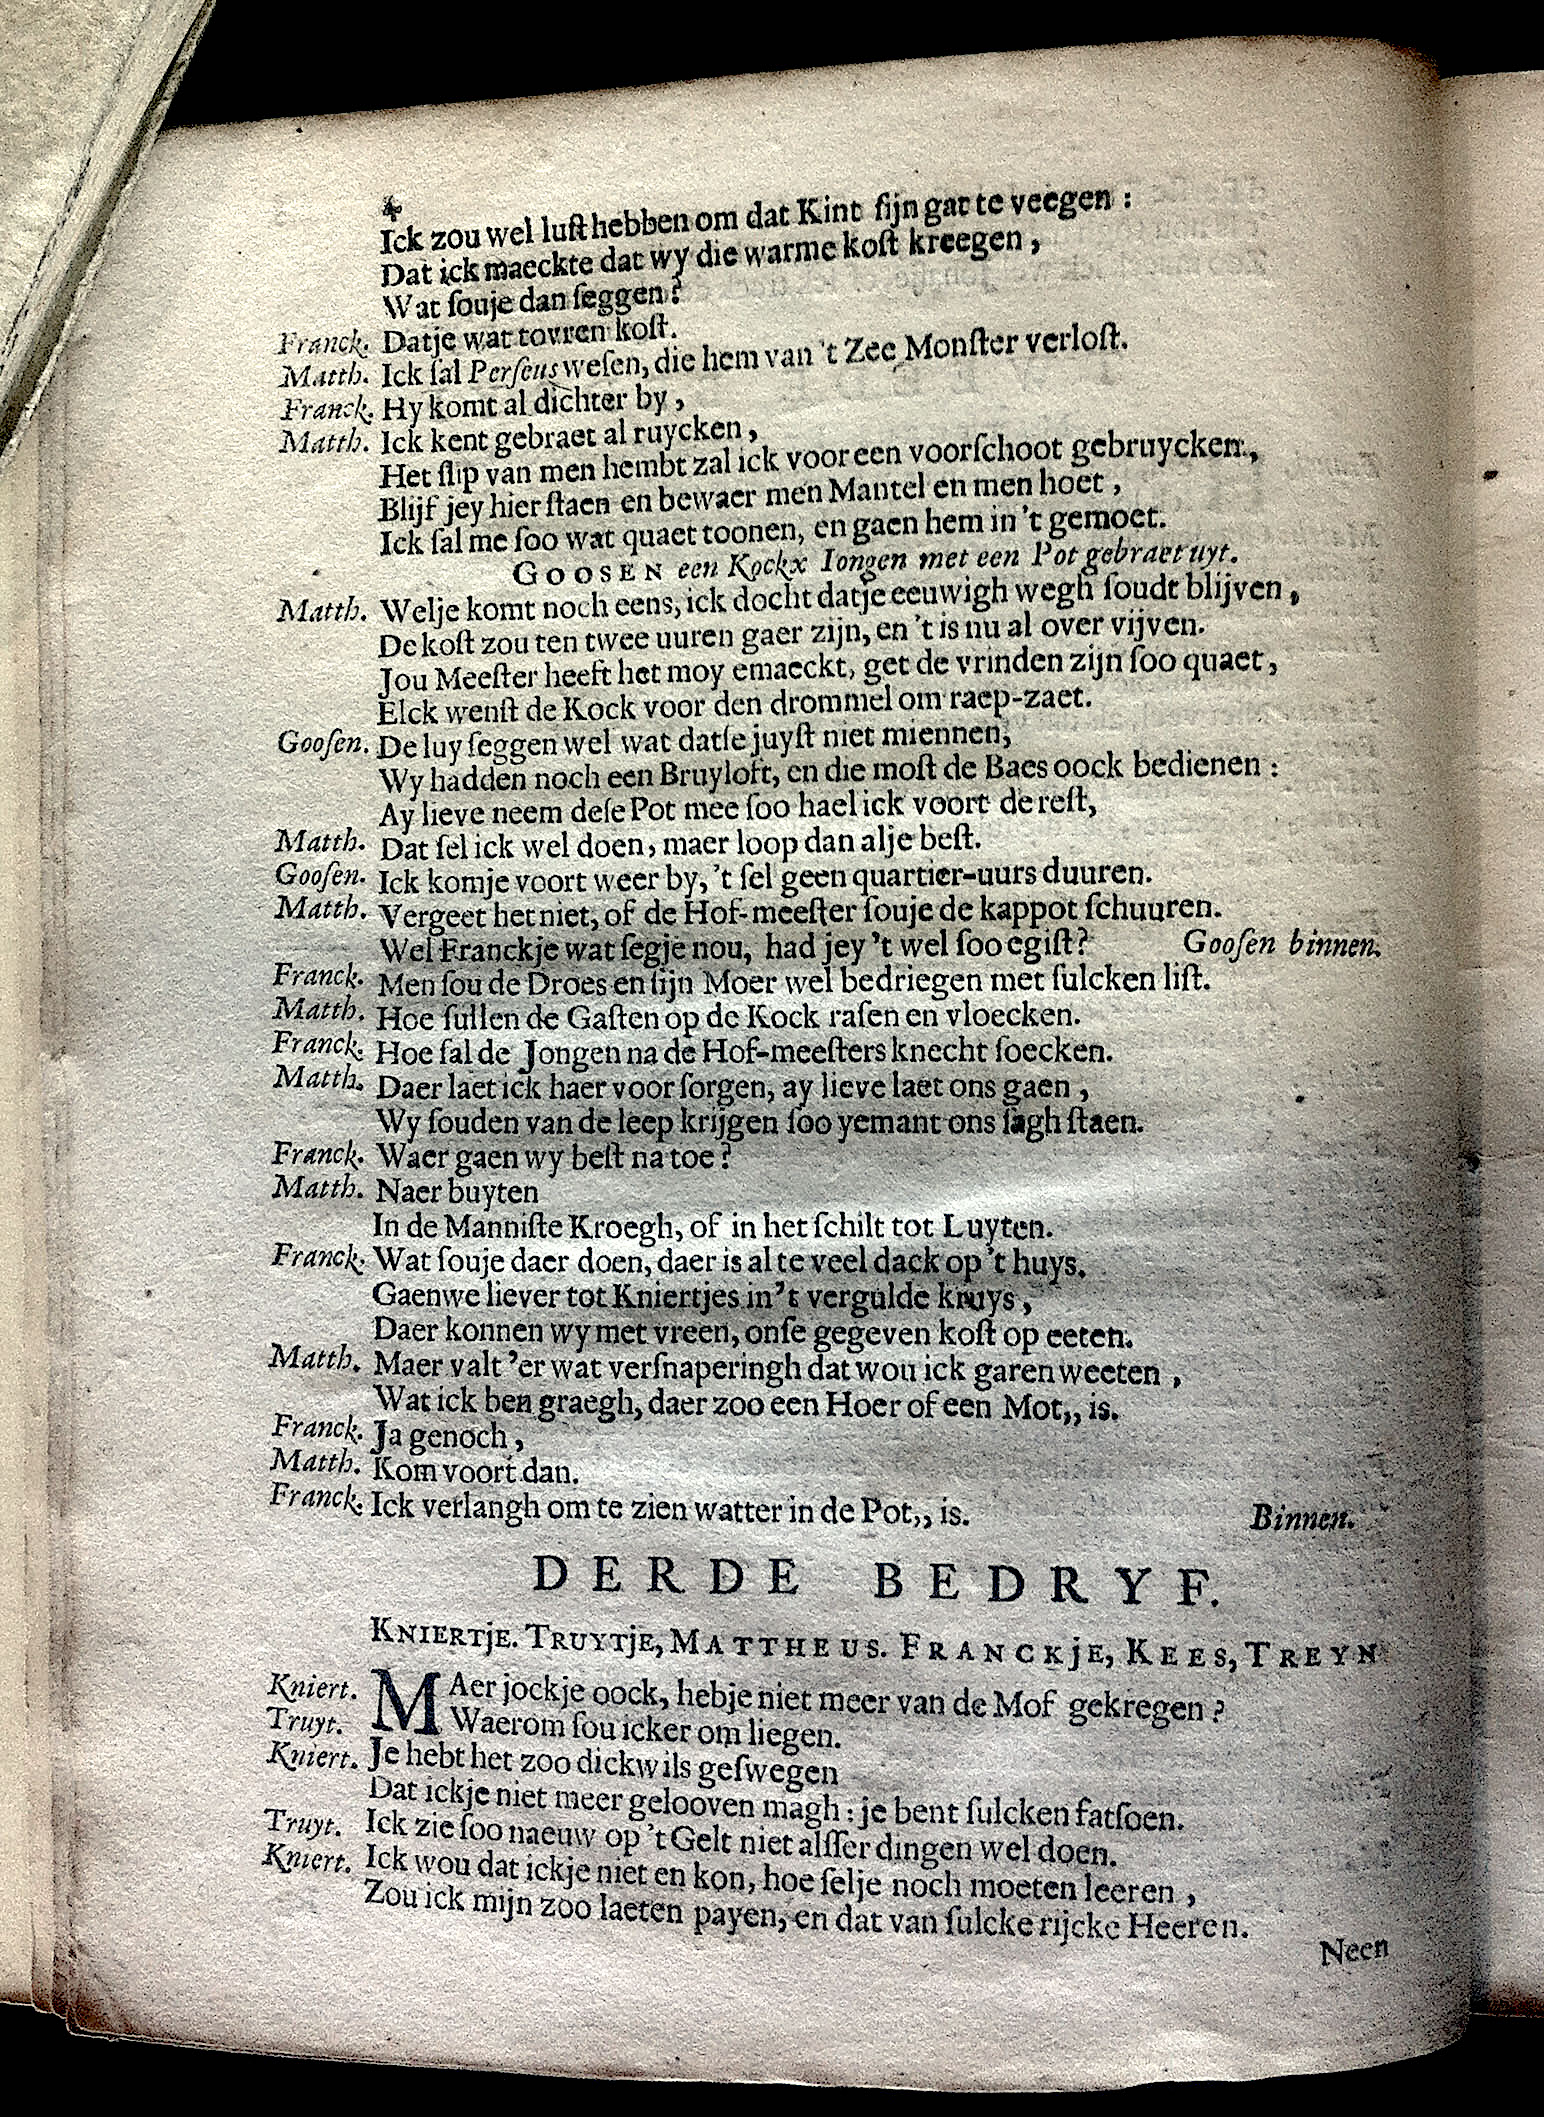 Ick zou wel lust hebben om dat Kint sijn gat te veegen :
Dat ick maeckte dat wy die warme kost kreegen ,
Wat souje dan seggen?
Franck. Datje wat tovren kost.
Matth. Ick sal Perseus wesen, die hem van 't Zee Monster verlost.
Franck. Hy komt al dichter by ,
Matth. Ick kent gebraet al ruycken ,
Het slip van men hembt zal ick voor een voorschoot gebruycken ,
Blijf jey hier staen en bewaer men Mantel en men hoet ,
Ick sal me soo wat quaet toonen, en gaen hem in 't gemoet.
GOOSEN een Kockx Iongen met een Pot gebraet uyt.
Matth. Welje komt noch eens, ick docht datje eeuwigh wegh soudt blijven ,
De kost zou ten twee uuren gaer zijn, en 't is nu al over vijven.
Jou Meester heeft het moy emaeckt, get de vrinden zijn soo quaet ,
Elck wenst de Kock voor den drommel om raep-zaet.
Goosen. De luy seggen wel wat datse juyst niet miennen,
Wy hadden noch een Bruyloft, en die most de Baes oock bedienen :
Ay lieve neem dese Pot mee soo hael ick voort de rest,
Matth. Dat sel ick wel doen, maer loop dan alje best.
Goosen. Ick komje voort weer by, 't sel geen quartier-uurs duuren.
Matth. Vergeet het niet, of de Hof-meester souje de kappot schuuren.
Wel Franckje wat segje nou, had jey 't wel soo egist? Goosen binnen.
Franck. Men sou de Droes en sijn Moer wel bedriegen met sulcken list.
Matth. Hoe sullen de Gasten op de Kock rasen en vloecken.
Franck. Hoe sal de Jongen na de Hof-meesters knecht soecken.
Matth. Daer laet ick haer voor sorgen, ay lieve laet ons gaen ,
Wy souden van de leep krijgen soo yemant ons sagh staen.
Franck. Waer gaen wy best na toe?
Matth. Naer buyten
In de Manniste Kroegh, of in het schilt tot Luyten.
Franck. Wat souje daer doen, daer is al te veel dack op 't huys.
Gaenwe liever tot Kniertjes in 't vergulde kruys ,
Daer konnen wy met vreen, onse gegeven kost op eeten.
Matth. Maer valt 'er wat versnaperingh dat wou ick garen weeten ,
Wat ick ben graegh, daer zoo een Hoer of een Mot,, is.
Franck. Ja genoch ,
Matth. Kom voort dan.
Franck. Ick verlangh om te zien watter in de Pot,, is. Binnen.
DERDE BEDRYF.
KNIERTJE. TRUYTJE, MATTHEUS. FRANCKJE, KEES, TREYN
Kniert. MAer jockje oock, hebje niet meer van de Mof gekregen ?
Truyt. Waerom sou icker om liegen.
Kniert. Je hebt het zoo dickwils geswegen
Dat ickje niet meer gelooven magh : je bent sulcken fatsoen.
Truyt. Ick zie soo naeuw op 't Gelt niet alsser dingen wel doen.
Kniert. Ick wou dat ickje niet en kon, hoe selje noch moeten leeren ,
Zou ick mijn zoo laeten payen, en dat van sulcke rijcke Heeren.
Neen